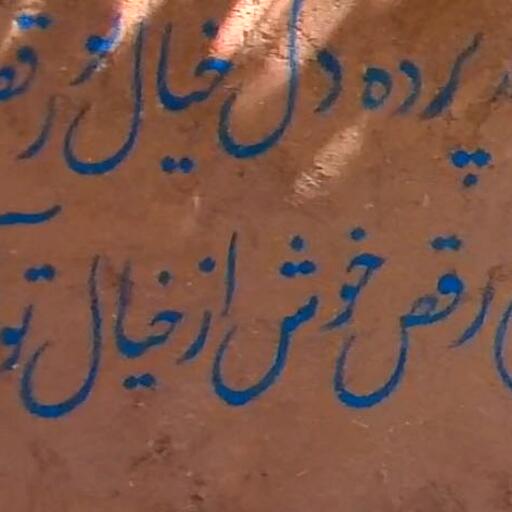 پرده دل خیال تو رق
رقص خوش از خیال تو